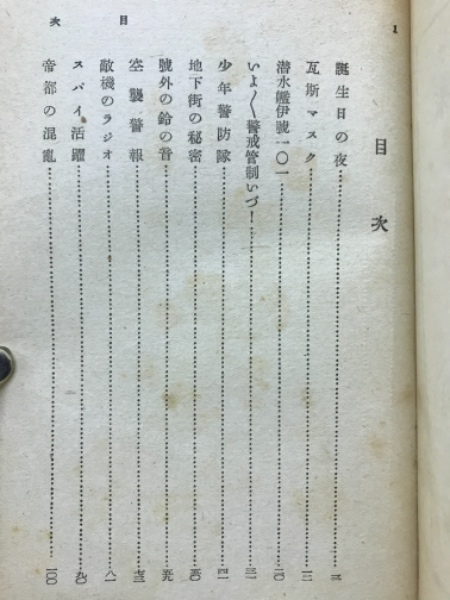 1
目次
目次
誕生日の夜……三
瓦斯マスク……一二
潜水艦伊號一〇一……二〇
いよ〱警戒管制いづ！……三一
少年警防隊……四一
地下街の秘密……五〇
號外の鈴の音……五九
空襲警報……七三
敵機のラジオ……八一
スパイ活躍……九〇
帝都の混亂……一〇〇